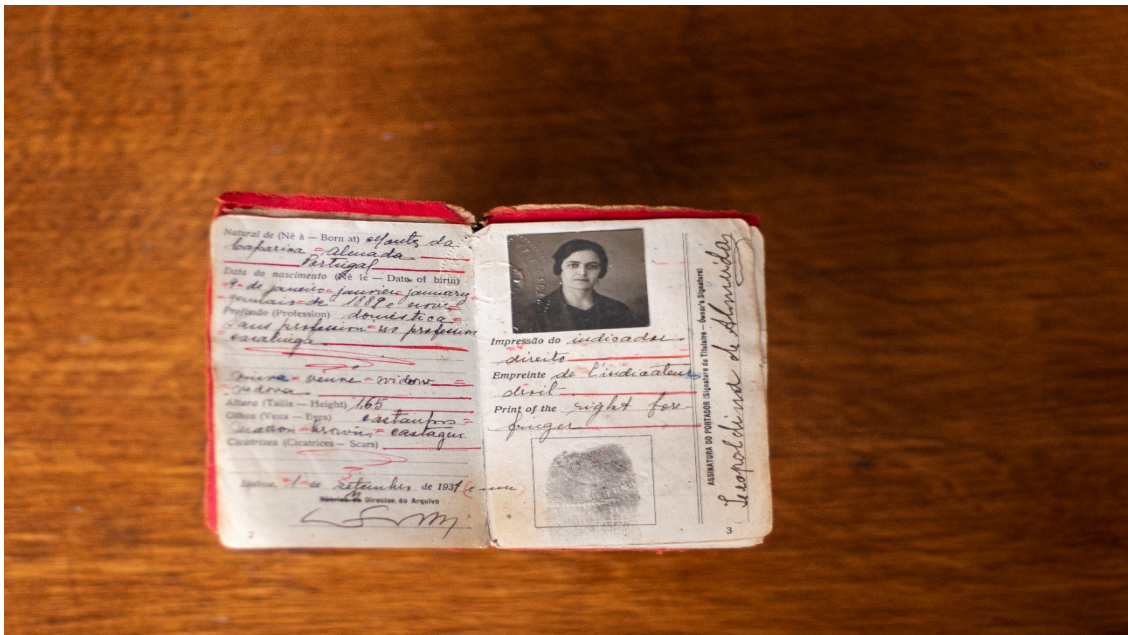 Natural de (Né à — Born at) Monte da
Caparica = Almada
Portugal
Data do nascimento (Né le — Date of birth)
9 = de janeiro = janvier = january =
gennaio = de 1889 e nove
Profissão (Profession) doméstica =
Sans profession = no profession
casalinga
viuva = veuve = widow =
vedova
Altura (Taille — Height) 1,65
Olhos (Yeux — Eyes) castanhos =
marron = brown = castagni
Cicatrizes (Cicatrices — Scars)
Lisboa, 1 de setembro de 1931 (e um
Director do Arquivo
2
Impressão do indicador
direito
Empreinte de l'indicateur
droit
Print of the right fore
finger
3
ASSINATURA DO PORTADOR (Signature du Titulaire — Owner's Signature)
Leopoldina de Almeida